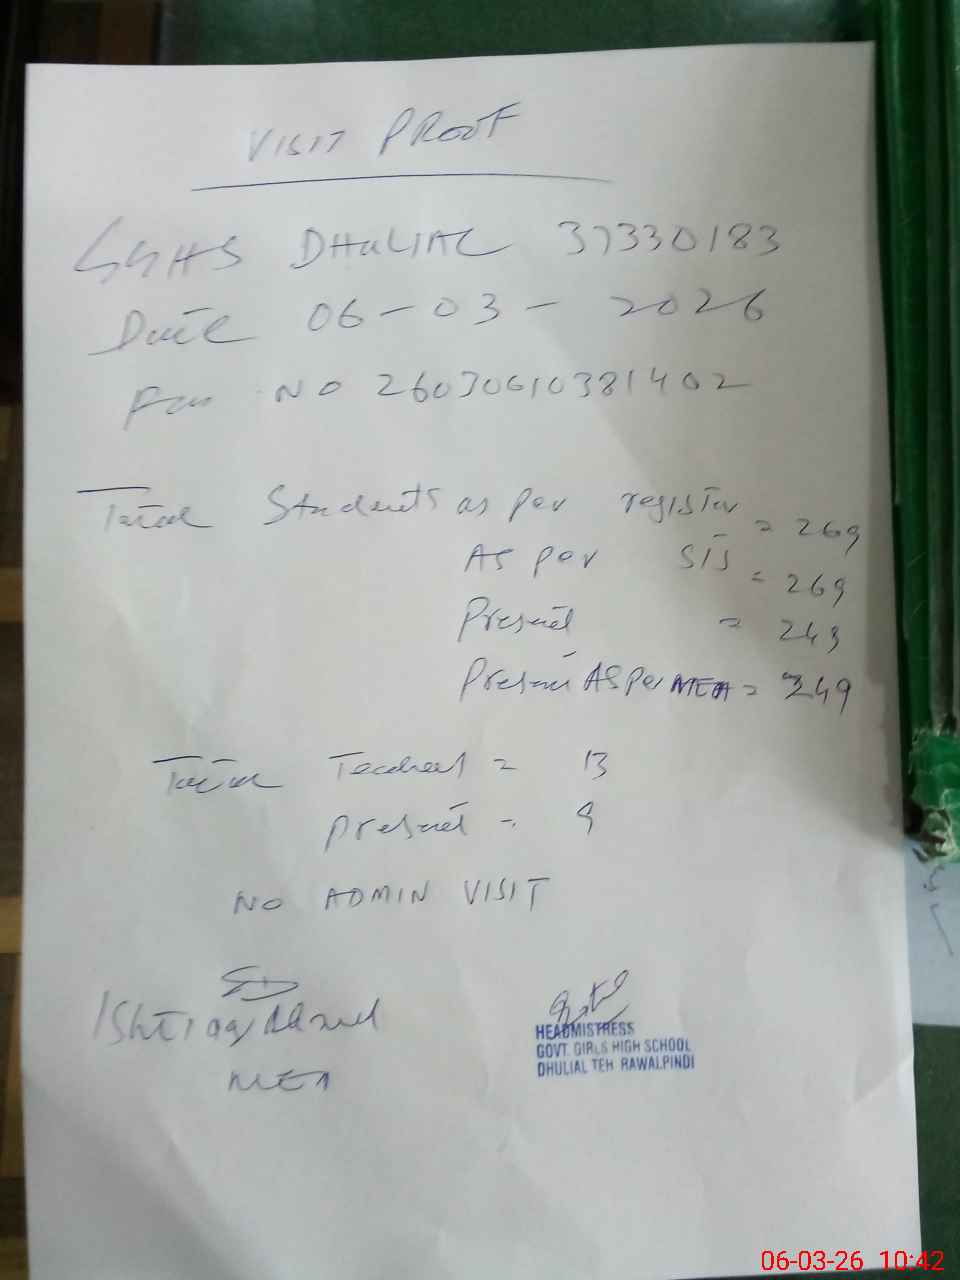 VISIT PROOF
GGHS DHULIAL 37330183
Date 06-03-2026
Fan NO 26030610381402
Total Students as per register = 269
As per SIS = 269
Present = 243
Present As Per MEA = 249
Total Teachers = 13
present = 9
NO ADMIN VISIT
Ishtiaq Ahmed
MEA
HEADMISTRESS
GOVT. GIRLS HIGH SCHOOL
DHULIAL TEH RAWALPINDI
06-03-26 10:42